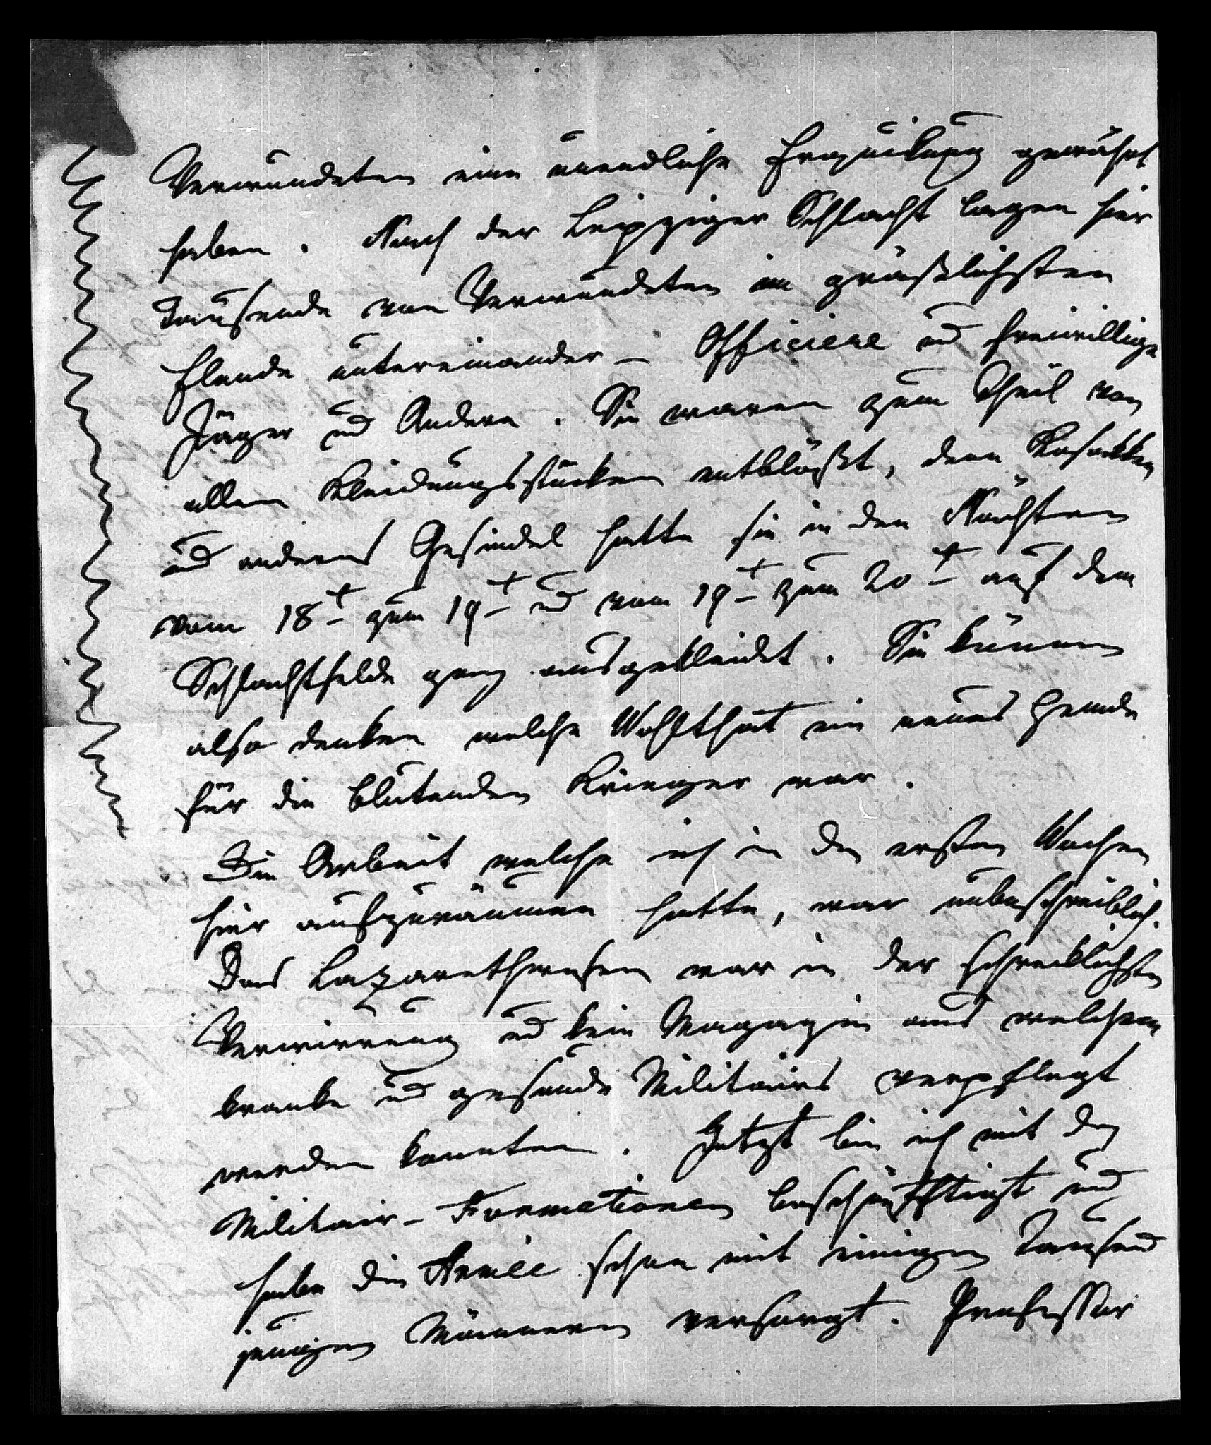 Verwundeten eine unendliche Erquickung gewährt
haben. Nach der Leipziger Schlacht lagen hier
Tausende von Verwundeten im gräßlichsten
Elende untereinander – Officiere und freiwillige
Jäger und Andere. Sie waren zum Theil von
allen Kleidungsstücken entblößt, denn Kosakken
und anderes Gesindel hatte sie in den Nächten
vom 18t zum 19t und vom 19t zum 20t auf dem
Schlachtfelde ganz ausgekleidet. Sie können
also denken welche Wohlthat ein neues Hemde
für die blutenden Krieger war.
Die Arbeit welche ich in den ersten Wochen
hier aufzuräumen hatte, war unbeschreiblich.
Das Lazarethwesen war in der schrecklichsten
Verwirrung und kein Magazin aus welchem
kranke und gesunde Militairs verpflegt
werden konnten. Jetzt bin ich mit den
Militair-Formationen beschäfftigt und
habe die Armée schon mit einigen Tausend
jungen Männern versorgt. Professor